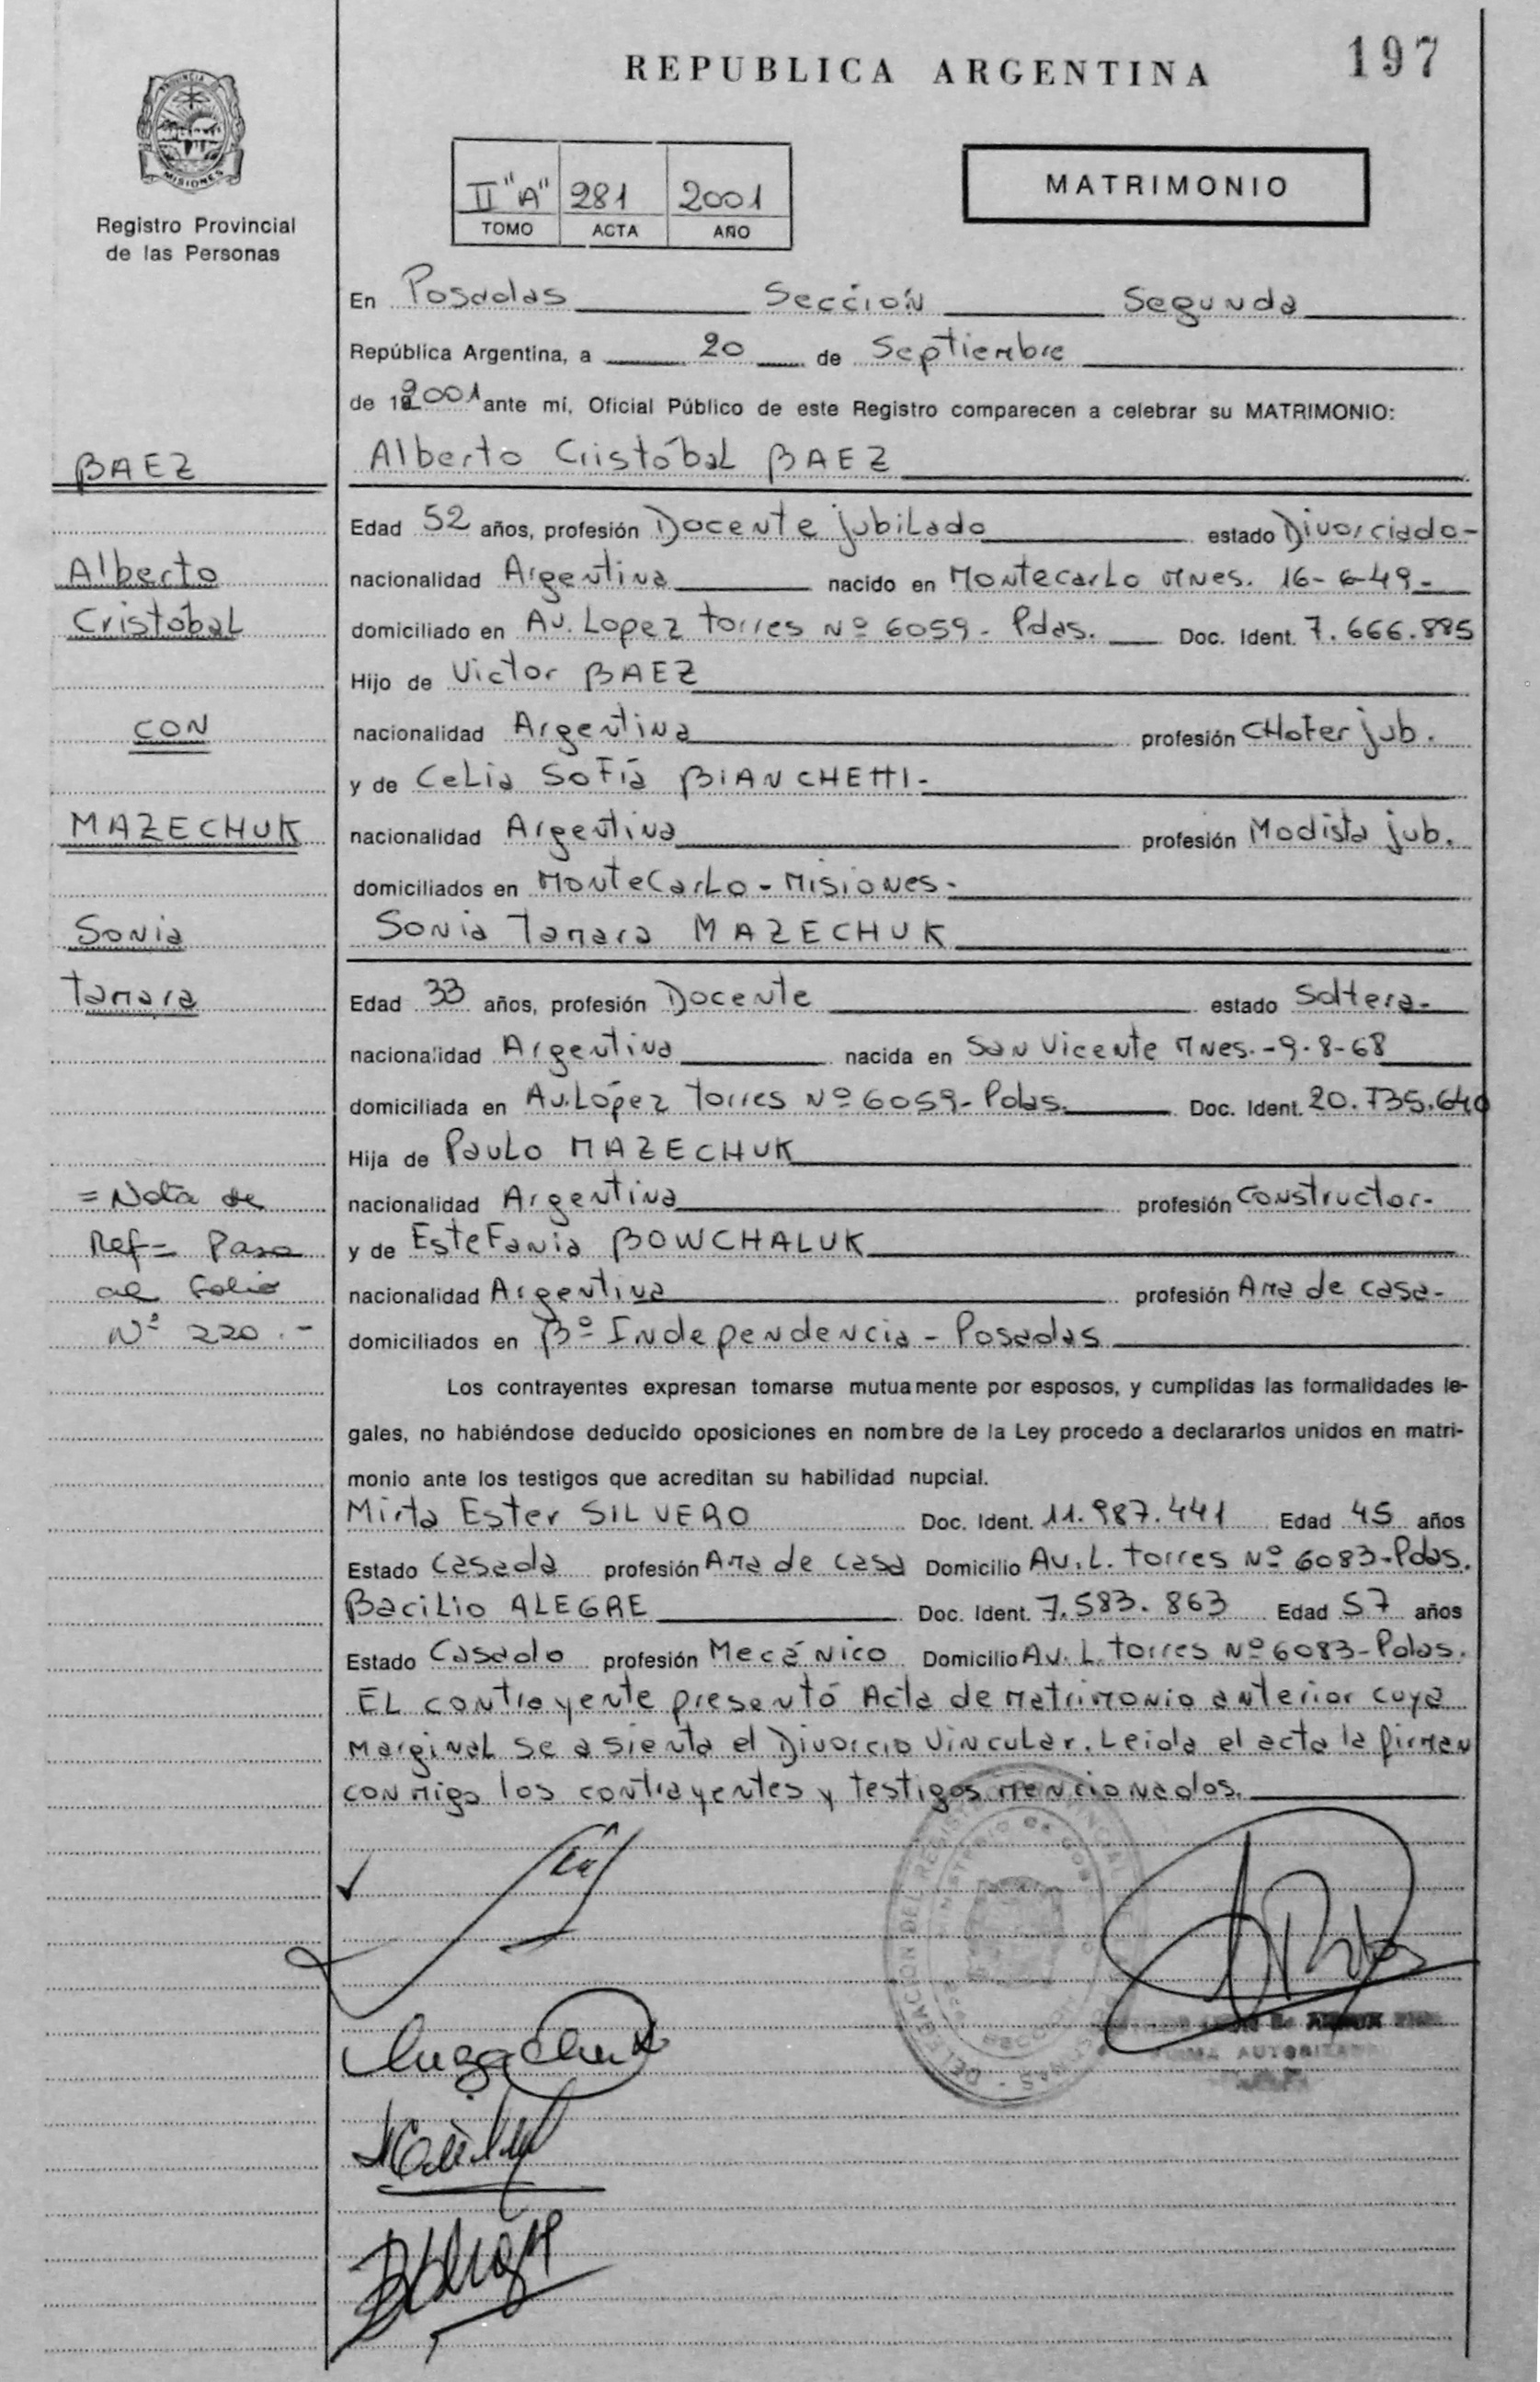 197
REPUBLICA ARGENTINA
PROVINCIA
MISIONES
Registro Provincial
de las Personas
II "A" 281 2001
TOMO ACTA AÑO
MATRIMONIO
En Posadas Sección Segunda
República Argentina, a 20 de Septiembre
de 2001 ante mí, Oficial Público de este Registro comparecen a celebrar su MATRIMONIO:
BAEZ
Alberto
Cristóbal
CON
MAZECHUK
Sonia
Tamara
= Nota de
Ref = Pasa
al folio
Nº 220.-
Alberto Cristóbal BAEZ
Edad 52 años, profesión Docente jubilado estado Divorciado-
nacionalidad Argentina nacido en Montecarlo Mnes. 16-6-49-
domiciliado en Av. Lopez Torres Nº 6059- Pdas. Doc. Ident. 7.666.885
Hijo de Victor BAEZ
nacionalidad Argentina profesión CHofer jub.
y de Celia Sofía BIANCHETTI-
nacionalidad Argentina profesión Modista jub.
domiciliados en Montecarlo - Misiones-
Sonia Tamara MAZECHUK
Edad 33 años, profesión Docente estado Soltera-
nacionalidad Argentina nacida en San Vicente Mnes.-9-8-68
domiciliada en Av. López Torres Nº 6059- Pdas. Doc. Ident. 20.735.640
Hija de Paulo MAZECHUK
nacionalidad Argentina profesión Constructor-
y de Estefania BOWCHALUK
nacionalidad Argentina profesión Ama de casa-
domiciliados en Bº Independencia - Posadas
Los contrayentes expresan tomarse mutuamente por esposos, y cumplidas las formalidades le-
gales, no habiéndose deducido oposiciones en nombre de la Ley procedo a declararlos unidos en matri-
monio ante los testigos que acreditan su habilidad nupcial.
Mirta Ester SILVERO Doc. Ident. 11.987.441 Edad 45 años
Estado Casada profesión Ama de casa Domicilio Av. L. Torres Nº 6083-Pdas.
Bacilio ALEGRE Doc. Ident. 7.583.863 Edad 57 años
Estado Casado profesión Mecánico Domicilio Av. L. Torres Nº 6083-Pdas.
El contrayente presentó Acta de matrimonio anterior cuya
marginal se asienta el Divorcio Vincular. Leida el acta la firman
conmigo los contrayentes y testigos mencionados.